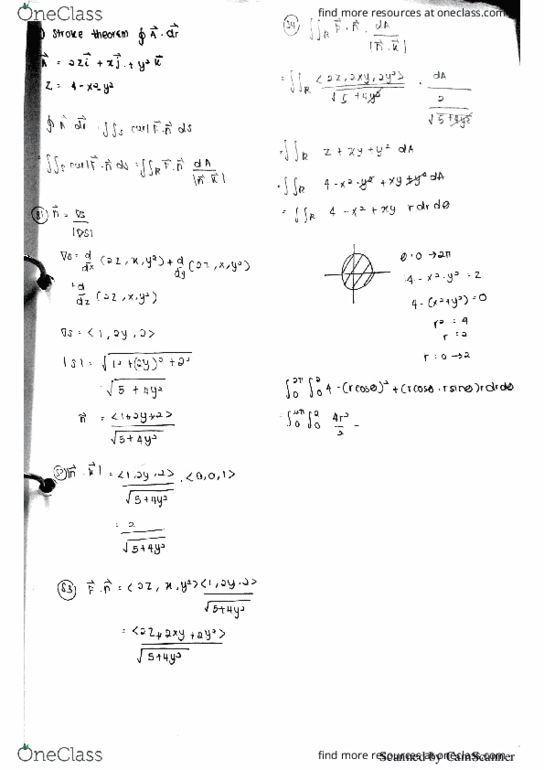 OneClass
find more resources at oneclass.com
) Stroke theorem ∮ A⃗ · dr⃗
A⃗ = 2zi⃗ + xj⃗ + y² k⃗
z = 4 - x² y²
∮ A⃗ dr⃗ = ∬s curl F⃗ · n⃗ ds
= ∬s curl F⃗ · n⃗ ds = ∬R F⃗ · n⃗ dA / |n⃗ · k⃗|
S1) n⃗ = ∇s / |∇s|
∇s = d/dx (2z, x, y²) + d/dy (2z, x, y²)
+ d/dz (2z, x, y²)
∇s = <1, 2y, 2>
|S| = √(1² + (2y)² + 2²)
= √(5 + 4y²)
n⃗ = <1+2y+2> / √(5+4y²)
n⃗ · k⃗| = <1, 2y, 2> / √(5+4y²) · <0,0,1>
= 2 / √(5+4y²)
S3) F⃗ · n⃗ = <2z, x, y²> <1, 2y, 2> / √(5+4y²)
= <2z + 2xy + 2y²> / √(5+4y²)
∬R F⃗ · n⃗ · dA / |n⃗ · k⃗|
= ∬R <2z, 2xy, 2y²> / √(5+4y²) · dA / (2 / √(5+4y²))
= ∬R z + xy + y² dA
= ∬R 4 - x² - y² + xy + y² dA
= ∬R 4 - x² + xy r dr dθ
θ: 0 → 2π
4 - x² - y² = z
4 - (x² + y²) = 0
r² = 4
r = 2
r = 0 → 2
∫₀^2π ∫₀^2 4 - (r cosθ)² + (r cosθ · r sinθ) r dr dθ
= ∫₀^2π ∫₀^2 4r²/2 -
OneClass
find more resources at oneclass.com
Scanned by CamScanner